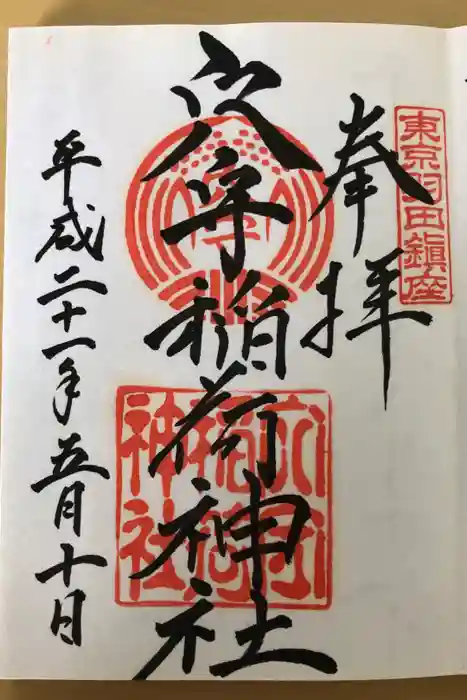 東京羽田鎮座
奉拝
穴守稲荷神社
穴守稲荷神社
平成二十一年五月十日